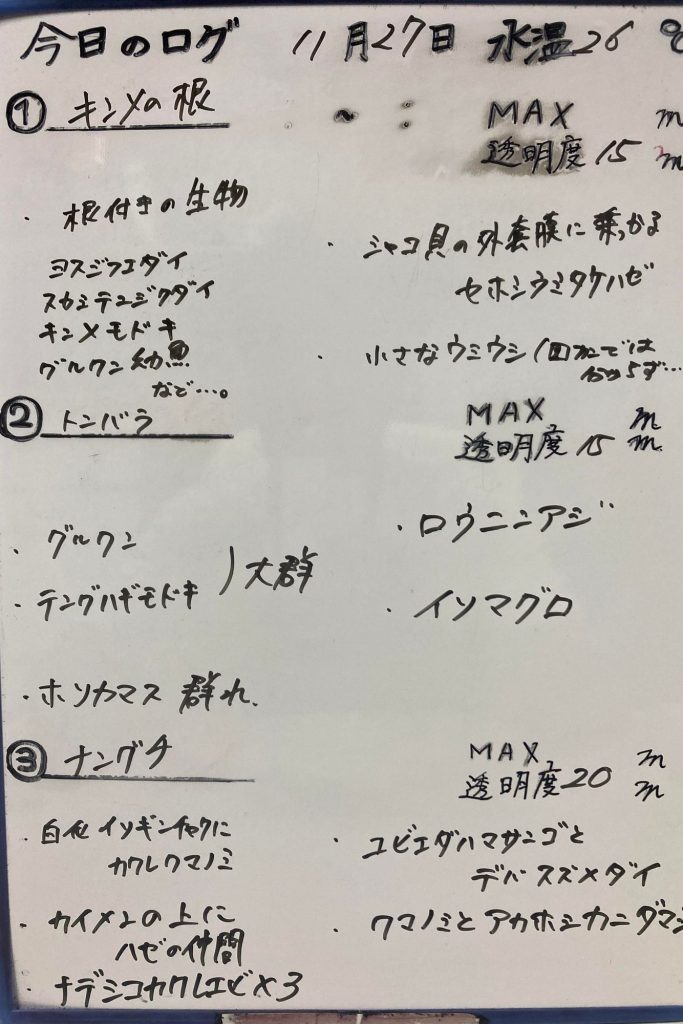 今日のログ 11月27日 水温26 ℃
① キンメの根 ~ : MAX m
透明度 15 m
・根付きの生物
ヨスジフエダイ
スカシテンジクダイ
キンメモドキ
グルクン幼魚
など…。
・シャコ貝の外套膜に乗っかる
セホシウミタケハゼ
・小さなウミウシ (
② トンバラ MAX m
透明度 15 m
・グルクン
・テングハギモドキ ) 大群
・ホソカマス 群れ.
・ロウニンアジ
・イソマグロ
③ ナングチ MAX m
透明度 20 m
・白化イソギンチャクに
カクレクマノミ
・カイメンの上に
ハゼの仲間
・ナデシコカクレエビ×3
・ユビエダハマサンゴと
デバスズメダイ
・クマノミとアカホシカニダマシ